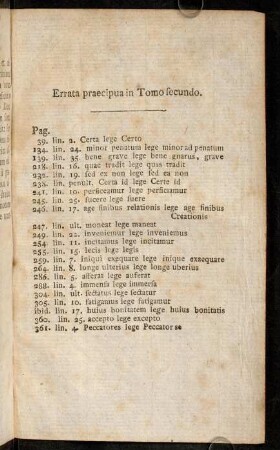 Errata praecipua in Tomo secundo.
Pag.
39. lin. 2. Certa lege Certo
134. lin. 24. minor penatum lege minor ad penatum
139. lin. 35. bene grave lege bene gnarus, grave
218. lin. 16. quae tradit lege quas tradit
232. lin. 19. sed ea non lege sed ex non
233. lin. penult. Certa id lege Certe id
241. lin. 10. perficamur lege perficiamur
245. lin. 25. fucero lege fuere
246. lin. 17. age finibus relationis lege age finibus
Creationis
247. lin. ult. moneat lege manent
249. lin. 22. inveniemur lege inveniemus
254. lin. 11. incitamus lege incitamur
255. lin. 15. lecis lege legis
259. lin. 7. Iniqui exequare lege inique exaequare
264. lin. 8. longe ulterius lege longe uberius
286. lin. 5. asserat lege auferat
288. lin. 4. immensis lege immersa
304. lin. ult. sectatus lege sectatur
305. lin. 10. fatigamus lege fatigamur
ibid. lin. 17. huius bonitatem lege huius bonitatis
360. lin. 25. accepto lege excepto
361. lin. 4. Peccatores lege Peccatorse